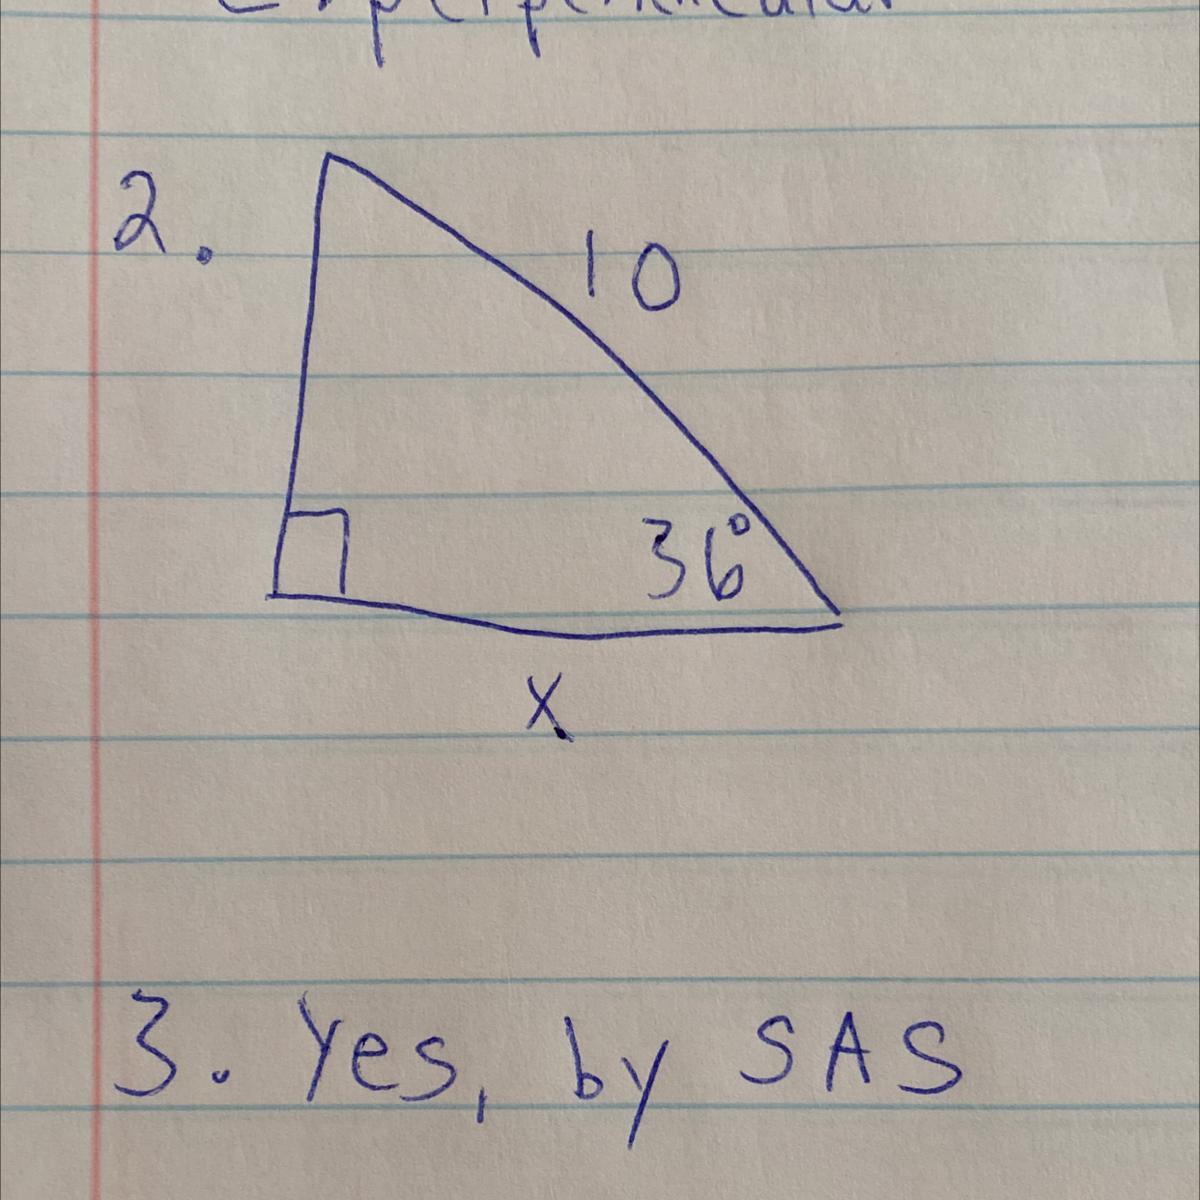 perpendicular
2.
10
36°
x
3. Yes, by SAS